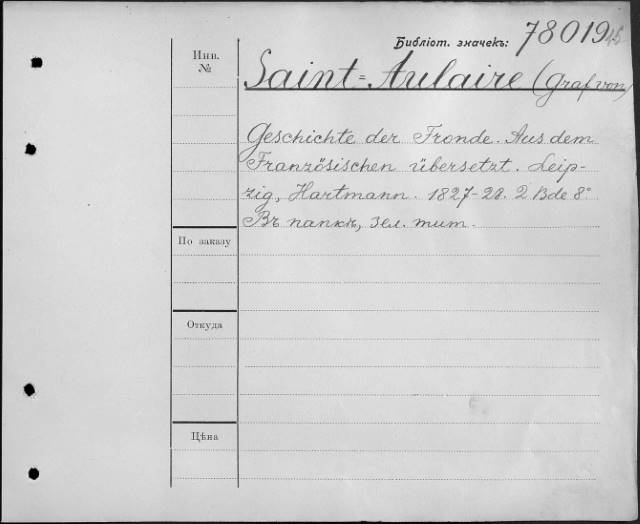 Инв.
№
Библіот. значекъ: 78019
Saint=Aulaire (Graf von)
Geschichte der Fronde. Aus dem
Französischen übersetzt. Leip-
zig, Hartmann. 1827-28. 2 Bde 8°
Въ папкѣ, зел. тит.
По заказу
Откуда
Цѣна